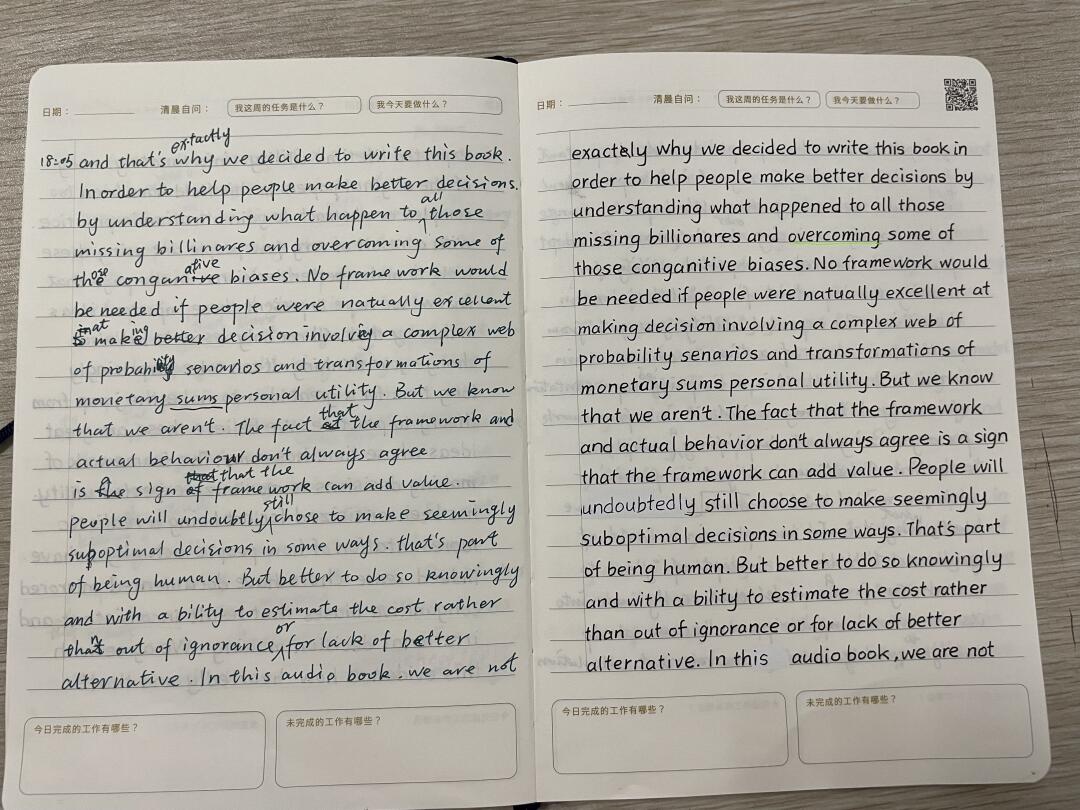 日期：
清晨自问：
我这周的任务是什么？
我今天要做什么？
extactly
18:05 and that's why we decided to write this book.
In order to help people make better decisions
all
by understanding what happen to those
missing billinares and overcoming some of
those conganitive biases. No framework would
be needed if people were natually excellent
at making better decision involving a complex web
of probability senarios and transformations of
monetary sums personal utility. But we know
that
that we aren't. The fact at the framework and
actual behaviour don't always agree
that that the
is a the sign of framework can add value.
still
people will undoubtly, chose to make seemingly
suboptimal decisions in some ways. that's part
of being human. But better to do so knowingly
and with a bility to estimate the cost rather
or
than out of ignorance for lack of better
alternative. In this audio book. we are not
今日完成的工作有哪些？
未完成的工作有哪些？
日期：
清晨自问：
我这周的任务是什么？
我今天要做什么？
exactly why we decided to write this book in
order to help people make better decisions by
understanding what happened to all those
missing billionares and overcoming some of
those conganitive biases. No framework would
be needed if people were natually excellent at
making decision involving a complex web of
probability senarios and transformations of
monetary sums personal utility. But we know
that we aren't. The fact that the framework
and actual behavior don't always agree is a sign
that the framework can add value. People will
undoubtedly still choose to make seemingly
suboptimal decisions in some ways. That's part
of being human. But better to do so knowingly
and with a bility to estimate the cost rather
than out of ignorance or for lack of better
alternative. In this audio book, we are not
今日完成的工作有哪些？
未完成的工作有哪些？